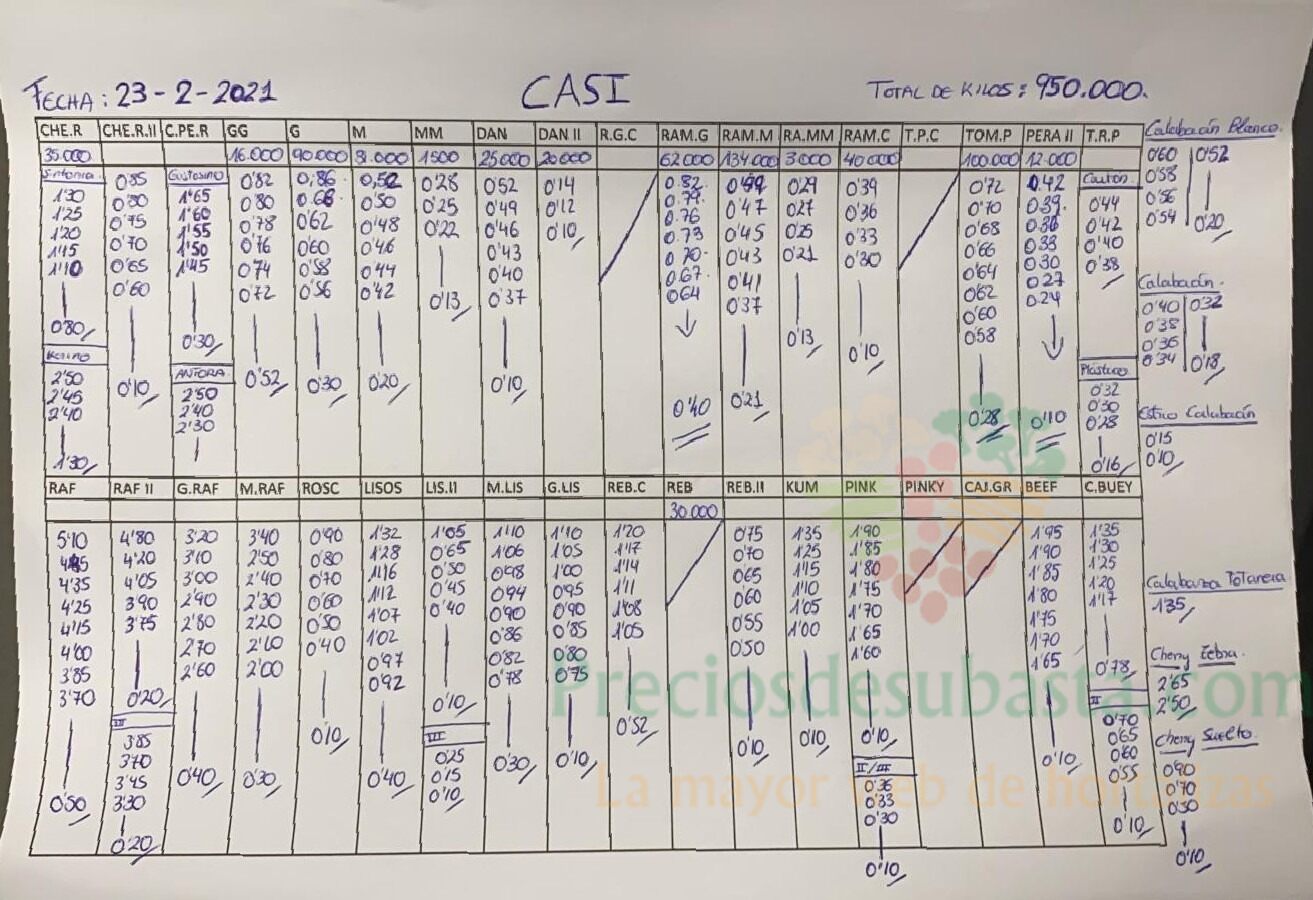 FECHA: 23-2-2021 CASI TOTAL DE KILOS: 950.000.
CHE.R CHE.R.II C.PE.R GG G M MM DAN DAN II R.G.C RAM.G RAM.M RA.MM RAM.C T.P.C TOM.P PERA II T.R.P
35.000 16.000 90.000 31.000 1500 25.000 20.000 62.000 134.000 3.000 40.000 100.000 12.000
Sintonia
1'30
1'25
1'20
1'15
1'10
0'80
2'50
2'45
2'40
1'30
0'85
0'80
0'75
0'70
0'65
0'60
0'10
Gustosino
1'65
1'60
1'55
1'50
1'45
0'30
ANTORA
2'50
2'40
2'30
0'82
0'80
0'78
0'76
0'74
0'72
0'52
0,86
0.66
0'62
0'60
0'58
0'56
0'30
0,52
0'50
0'48
0'46
0'44
0'42
0'20
0'28
0'25
0'22
0'13
0'52
0'49
0'46
0'43
0'40
0'37
0'10
0'14
0'12
0'10
0.82
0.79
0.76
0.73
0.70
0.67
0.64
0'40
0'47
0'45
0'43
0'41
0'37
0'21
0'29
0'27
0'25
0'21
0'13
0'39
0'36
0'33
0'30
0'10
0'72
0'70
0'68
0'66
0'64
0'62
0'60
0'58
0'28
0.42
0.39
0.36
0.33
0.30
0.27
0.24
0'10
Cartón
0'44
0'42
0'40
0'38
Plástico
0'32
0'30
0'28
0'16
Calabacín Blanco.
0'60 0'52
0'58
0'56
0'54 0'20
Calabacín.
0'40 0'32
0'38
0'36
0'34 0'18
Estrío Calabacín
0'15
0'10
RAF RAF II G.RAF M.RAF ROSC LISOS LIS.II M.LIS G.LIS REB.C REB REB.II KUM PINK PINKY CAJ.GR BEEF C.BUEY
30.000
5'10
4'35
4'25
4'15
4'00
3'85
3'70
0'50
4'80
4'20
4'05
3'90
3'75
0'20
III
3'85
3'70
3'45
3'30
0'20
3'20
3'10
3'00
2'90
2'80
2'70
2'60
0'40
3'40
2'50
2'40
2'30
2'20
2'10
2'00
0'30
0'90
0'80
0'70
0'60
0'50
0'40
0'10
1'32
1'28
1'16
1'12
1'07
1'02
0'97
0'92
0'40
1'05
0'65
0'50
0'45
0'40
0'10
III
0'25
0'15
0'10
1'10
1'06
0'98
0'94
0'90
0'86
0'82
0'78
0'30
1'10
1'05
1'00
0'95
0'90
0'85
0'80
0'75
0'10
1'20
1'17
1'14
1'11
1'08
1'05
0'52
0'75
0'70
0'65
0'60
0'55
0'50
0'10
1'35
1'25
1'15
1'10
1'05
1'00
0'10
1'90
1'85
1'80
1'75
1'70
1'65
1'60
0'10
II/III
0'36
0'33
0'30
0'10
1'95
1'90
1'85
1'80
1'75
1'70
1'65
0'10
1'35
1'30
1'25
1'20
1'17
0'78
II
0'70
0'65
0'60
0'55
0'10
Calabaza Totanera
1'35
Cherry Zebra.
2'65
2'50
Cherry Suelto.
0'90
0'70
0'50
0'10
Preciosdesubasta.com
La mayor web de hortalizas